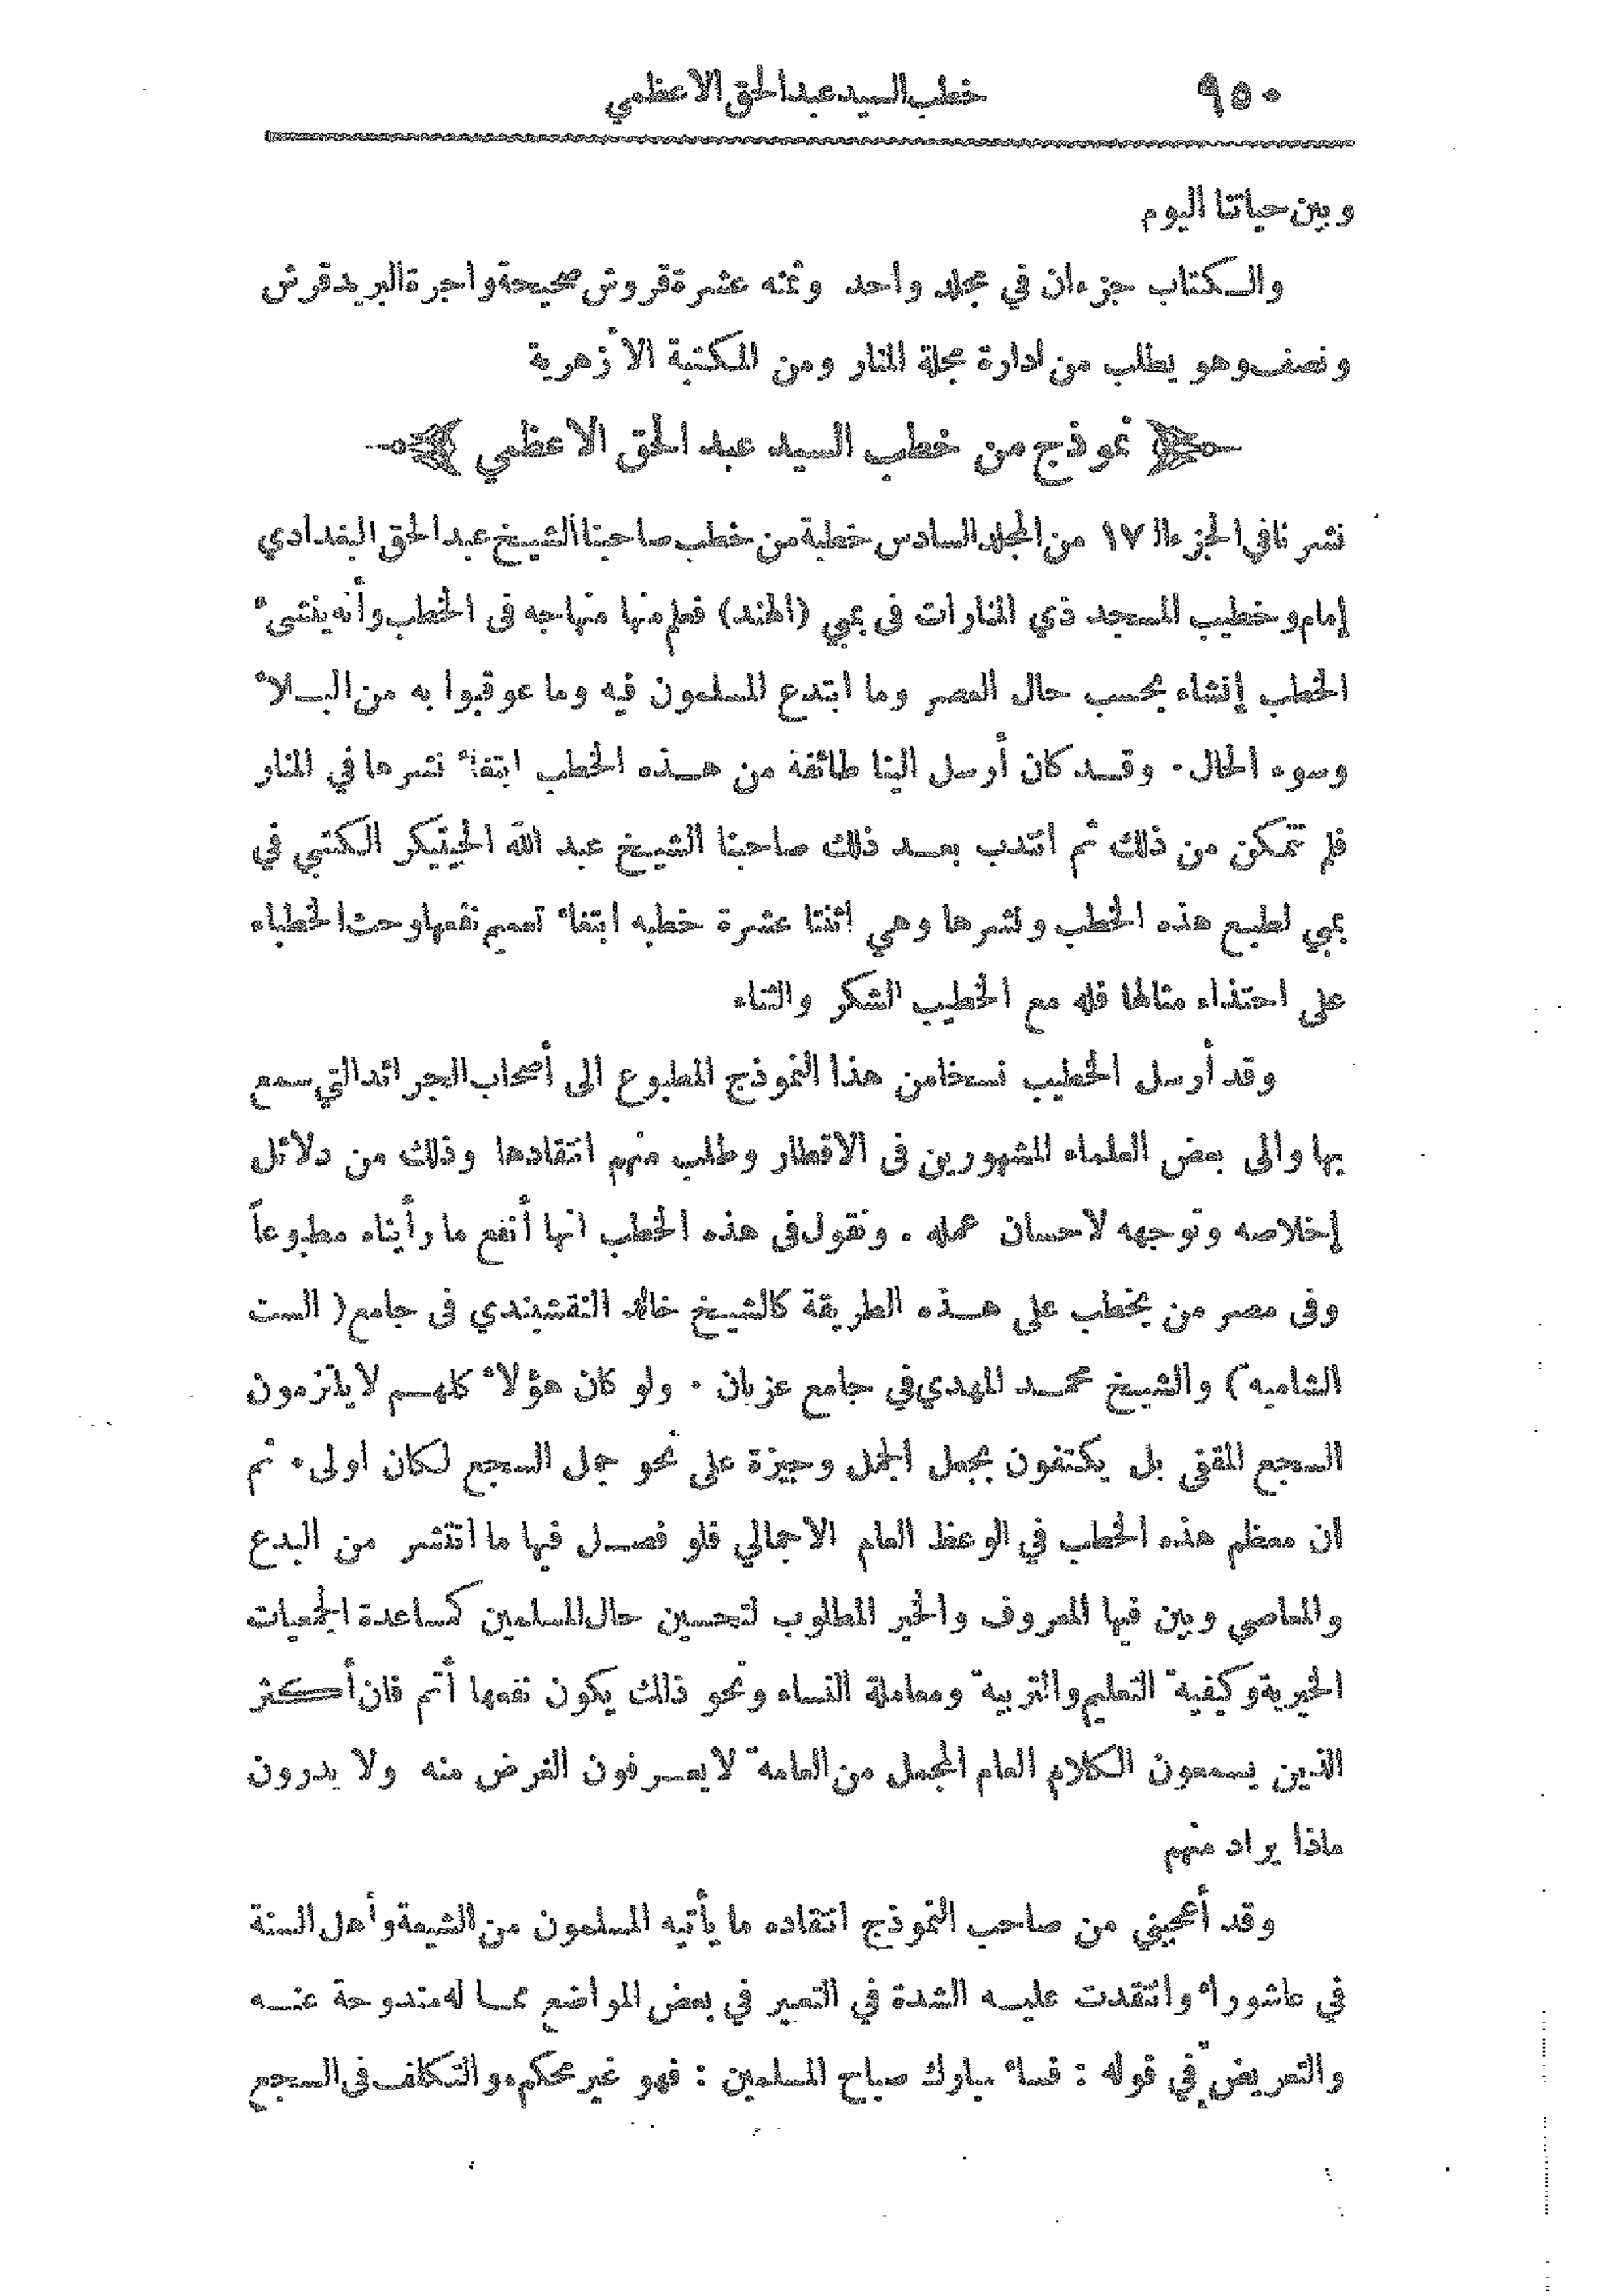 ٩٥٠ خطب السيد عبد الحق الاعظمي
وبين حياتنا اليوم
والكتاب جزءان في مجلد واحد وثمنه عشرة قروش صحيحة واجرة البريد قرش
ونصف وهو يطلب من ادارة مجلة المنار ومن المكتبة الأزهرية
نموذج من خطب السيد عبد الحق الاعظمي
نشرنا في الجزء الـ ١٧ من المجلد السادس خطبة من خطب صاحبنا الشيخ عبد الحق البغدادي
إمام وخطيب المسجد ذي المنارات في بمبي (الهند) فعلم منها منهاجه في الخطب وأنه ينشئ
الخطب إنشاء بحسب حال العصر وما ابتدع المسلمون فيه وما عوقبوا به من البلاء
وسوء الحال . وقد كان أرسل الينا طائفة من هذه الخطب ابتغاء نشرها في المنار
فلم نتمكن من ذلك ثم انتدب بعد ذلك صاحبنا الشيخ عبد الله الجيتيكر الكتبي في
بمبي لطبع هذه الخطب ونشرها وهي اثنتا عشرة خطبه ابتغاء تعميم نفعها وحث الخطباء
على احتذاء مثالها فله مع الخطيب الشكر والثناء
وقد أرسل الخطيب نسخا من هذا النموذج المطبوع الى أصحاب الجرائد التي سمع
بها والى بعض العلماء المشهورين في الاقطار وطلب منهم انتقادها وذلك من دلائل
إخلاصه وتوجهه لاحسان عمله . ونقول في هذه الخطب انها أنفع ما رأيناه مطبوعاً
وفي مصر من يخطب على هذه الطريقة كالشيخ خالد النقشبندي في جامع (الست
الشاميه) والشيخ محمد المهدي في جامع عزبان . ولو كان هؤلاء كلهم لا يلتزمون
السجع المقفى بل يكتفون بجعل الجمل وجيزة على نحو جمل السجع لكان اولى . ثم
ان معظم هذه الخطب في الوعظ العام الاجمالي فلو فصل فيها ما انتشر من البدع
والمعاصي وبين فيها المعروف والخير المطلوب لتحسين حال المسلمين كمساعدة الجمعيات
الخيرية وكيفية التعليم والتربية ومعاملة النساء ونحو ذلك يكون نفعها أتم فان أكثر
الذين يسمعون الكلام العام المجمل من العامة لا يعرفون الغرض منه ولا يدرون
ماذا يراد منهم
وقد أعجبني من صاحب النموذج انتقاده ما يأتيه المسلمون من الشيعة وأهل السنة
في عاشوراء وانتقدت عليه الشدة في التعبير في بعض المواضع مما له مندوحة عنه
والتعريض في قوله : فساء مبارك صباح المسلمين : فهو غير محكم . والتكلف في السجع